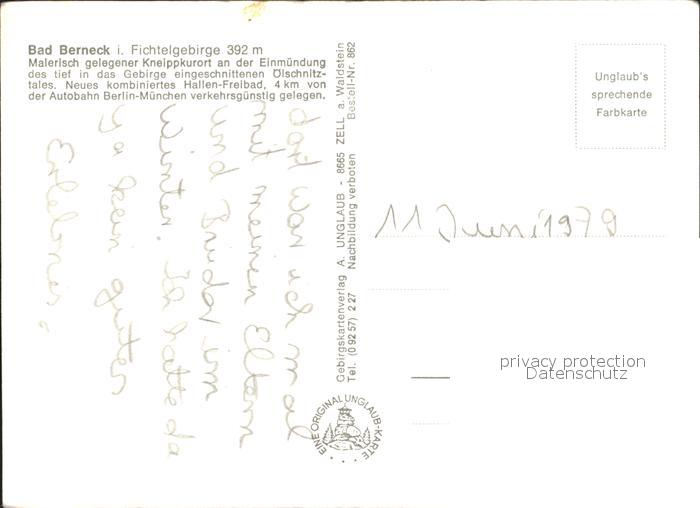 Bad Berneck i. Fichtelgebirge 392 m
Malerisch gelegener Kneippkurort an der Einmündung
des tief in das Gebirge eingeschnittenen Ölschnitz-
tales. Neues kombiniertes Hallen-Freibad, 4 km von
der Autobahn Berlin-München verkehrsgünstig gelegen.
dort war ich mal
mit meinen Eltern
und Bruder im
Winter. Ich hatte da
ja kein guten
Erlebnis.
Gebirgskartenverlag A. UNGLAUB - 8665 ZELL a. Waldstein
Tel. (0 92 57) 2 27 Nachbildung verboten Bestell-Nr. 862
Unglaub's
sprechende
Farbkarte
11 Juni 1979
privacy protection
Datenschutz
EINE ORIGINAL UNGLAUB-KARTE